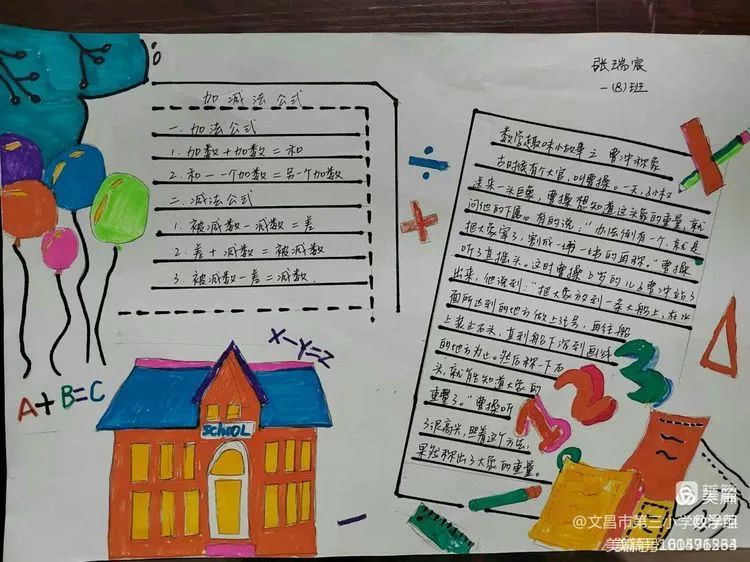 张瑞宸
一(8)班
加减法公式
一.加法公式
1.加数+加数=和
2.和-一个加数=另一个加数
二.减法公式
1.被减数-减数=差
2.差+减数=被减数
3.被减数-差=减数.
A+B=C
X-Y=Z
SCHOOL
数学趣味小故事之 曹冲称象
古时候有个大官,叫曹操。一天,孙权
送来一头巨象,曹操想知道这头象的重量,就
问他的下属。有的说:“办法倒有一个,就是
把大象宰了,割成一块一块的再称。”曹操
听了直摇头。这时曹操6岁的儿子曹冲站了
出来,他说到:“把大象放到一条大船上,在水
面所达到的地方做上记号,再往船
上装上石头,直到船下沉到画线
的地方为止。然后称一下石
头,就能知道大象的
重量了。”曹操听
了很高兴,照着这个方法,
果然称出了大象的重量。
÷
+
×
-
123
美篇
@文昌市第三小学数学组